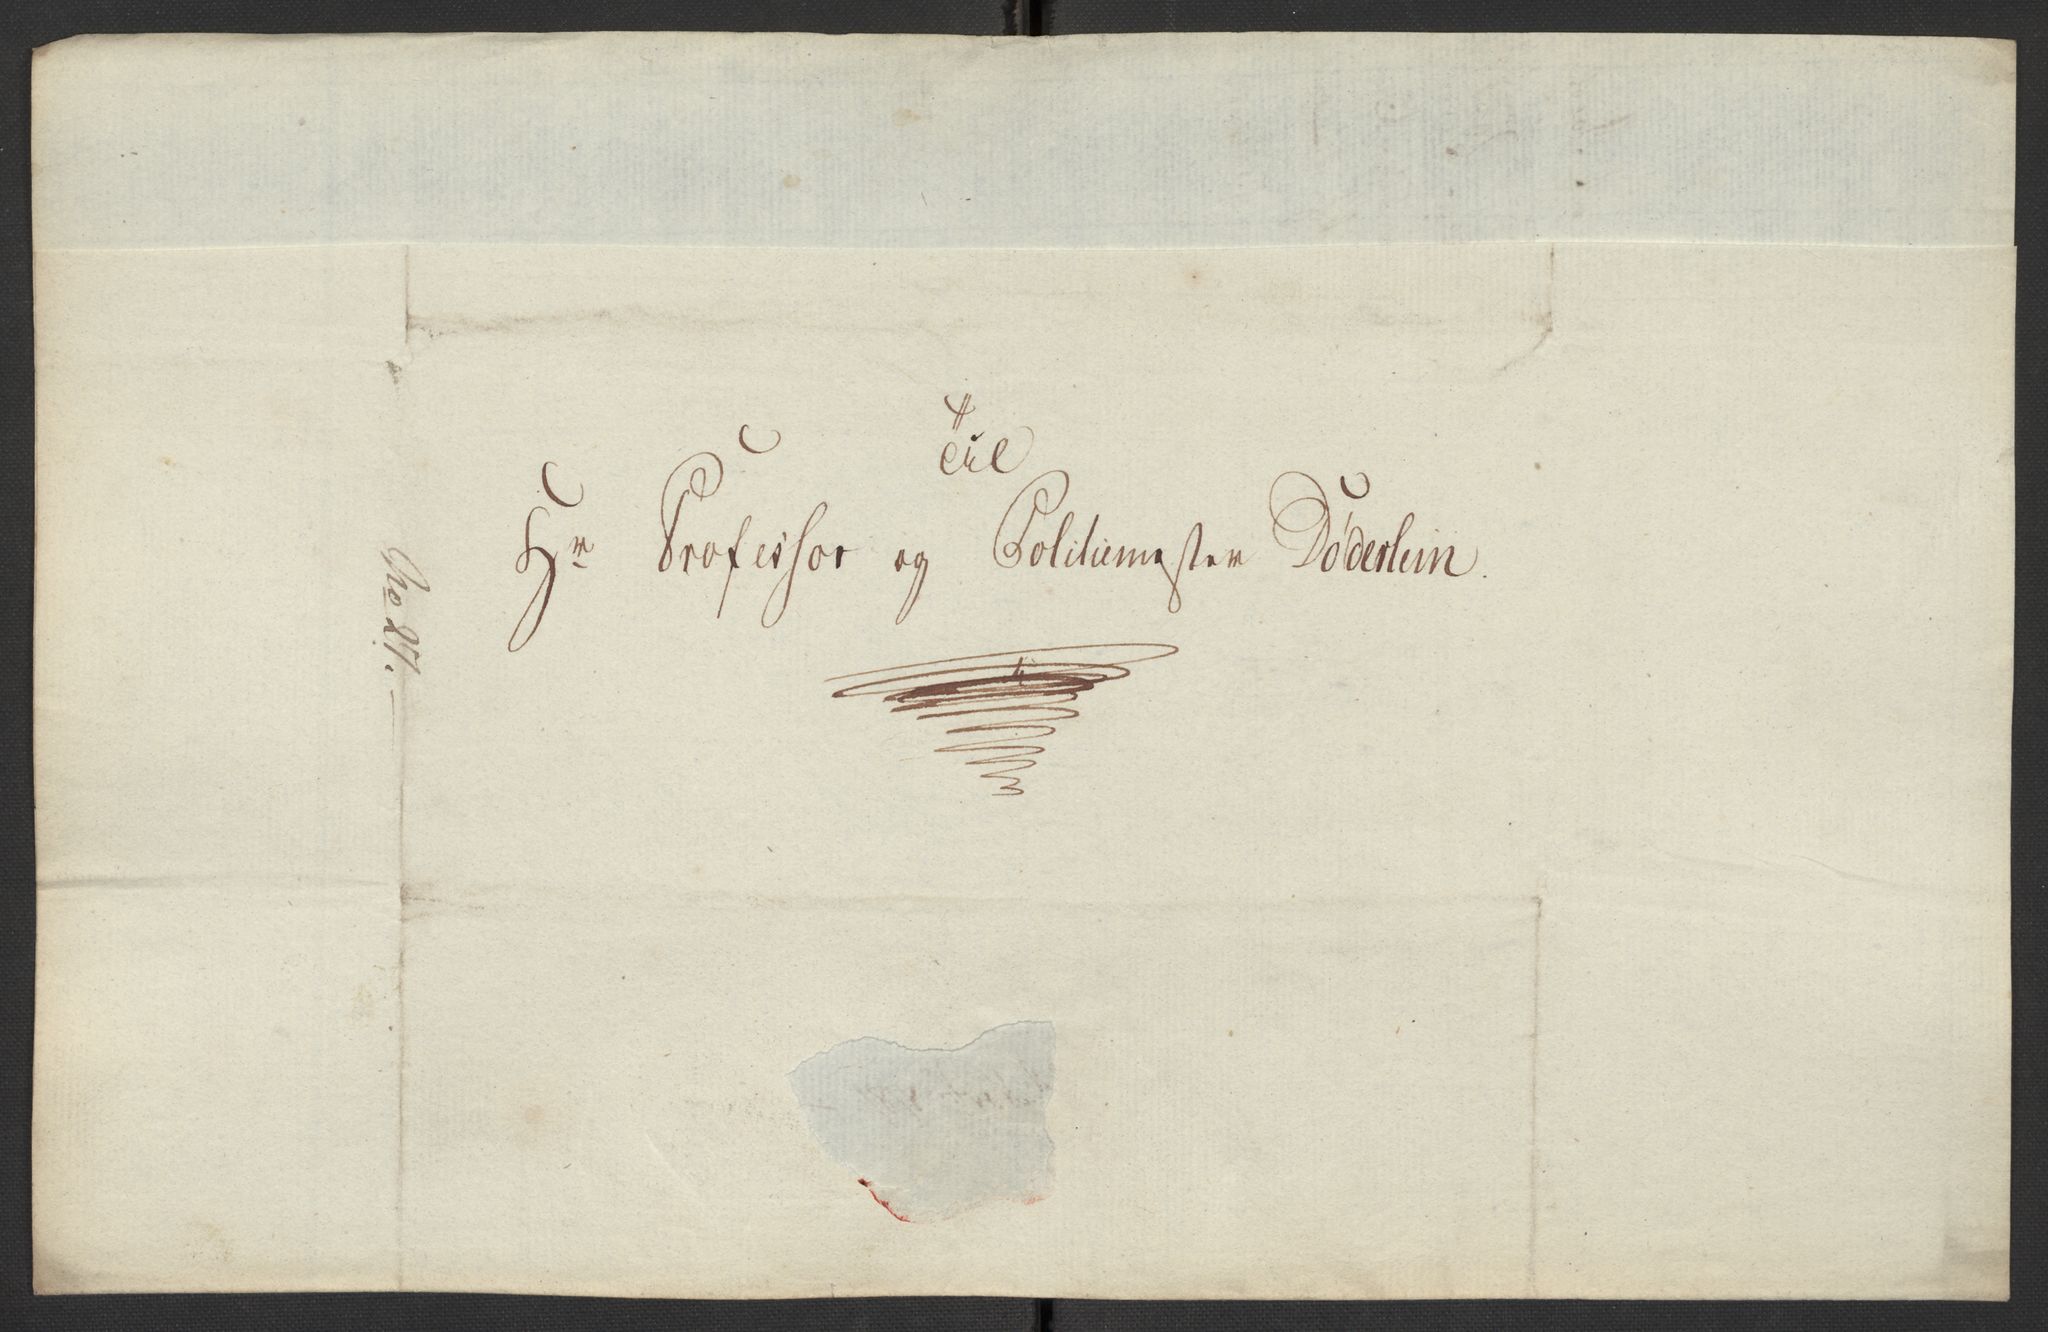 Til
Hr Professor og Politiemester Döderlein.
No 87.